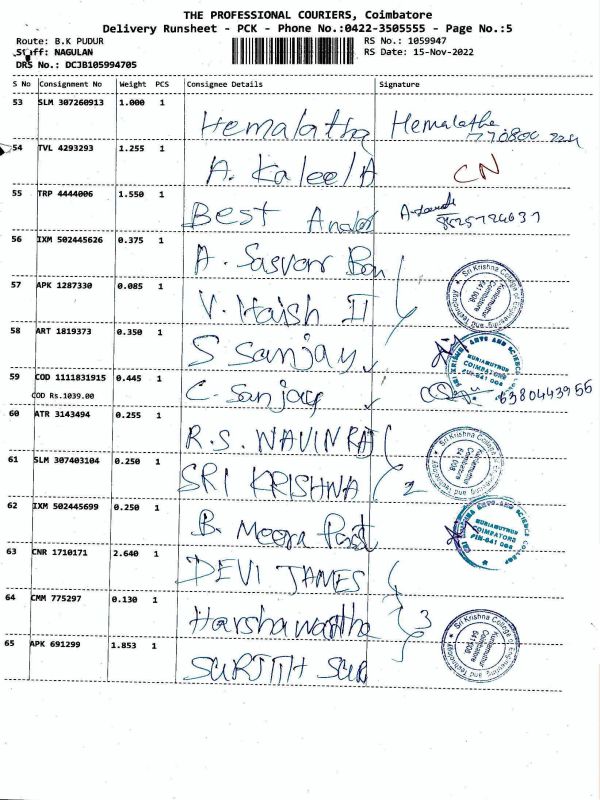 THE PROFESSIONAL COURIERS, Coimbatore
Delivery Runsheet - PCK - Phone No.:0422-3505555 - Page No.:5
Route: B.K PUDUR
RS No.: 1059947
Staff: NAGULAN
RS Date: 15-Nov-2022
DRS No.: DCJB105994705
S No Consignment No Weight PCS Consignee Details Signature
53 SLM 307260913 1.000 1 Hemalatha Hemalatha
54 TVL 4293293 1.255 1 A. Kaleel A CN
55 TRP 4444006 1.550 1 Best
56 IXM 502445626 0.375 1 A.
57 APK 1287330 0.085 1 V.
58 ART 1819373 0.350 1 S Sanjay
59 COD 1111831915 0.445 1 C. Sanjay 6380443956
COD Rs.1039.00
60 ATR 3143494 0.255 1 R.S. NAVINRAJ
61 SLM 307403104 0.250 1 SRI KRISHNA 2
62 IXM 502445699 0.250 1 B. Meera
63 CNR 1710171 2.640 1 DEVI JAMES
64 CMM 775297 0.130 1 Harshavardha 3
65 APK 691299 1.853 1 SURJITH SUR
Sri Krishna College of Engineering and Technology
Kuniamuthur
Coimbatore
641 008
SRI KRISHNA ARTS AND SCIENCE COLLEGE
KUNIAMUTHUR
COIMBATORE
PIN-641 008
Sri Krishna College of Engineering and Technology
Kuniamuthur
Coimbatore
641 008
SRI KRISHNA ARTS AND SCIENCE COLLEGE
KUNIAMUTHUR
COIMBATORE
PIN-641 008
Sri Krishna College of Engineering and Technology
Kuniamuthur
Coimbatore
641 008